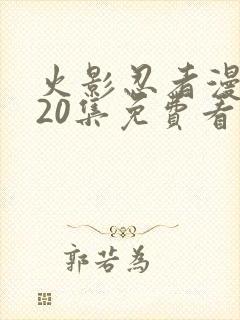 火影忍者漫
20集免費看
郭若為